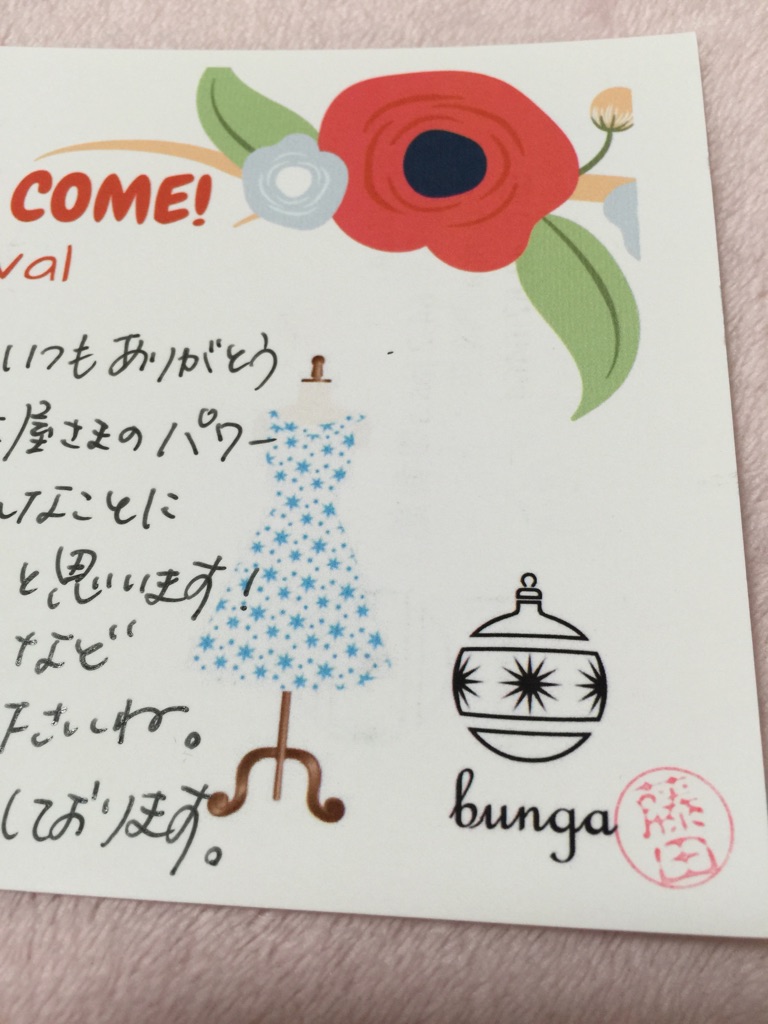 COME!
val
いつもありがとう
屋さまのパワー
なことに
と思います!
など
さいね。
しております。
bunga
藤田